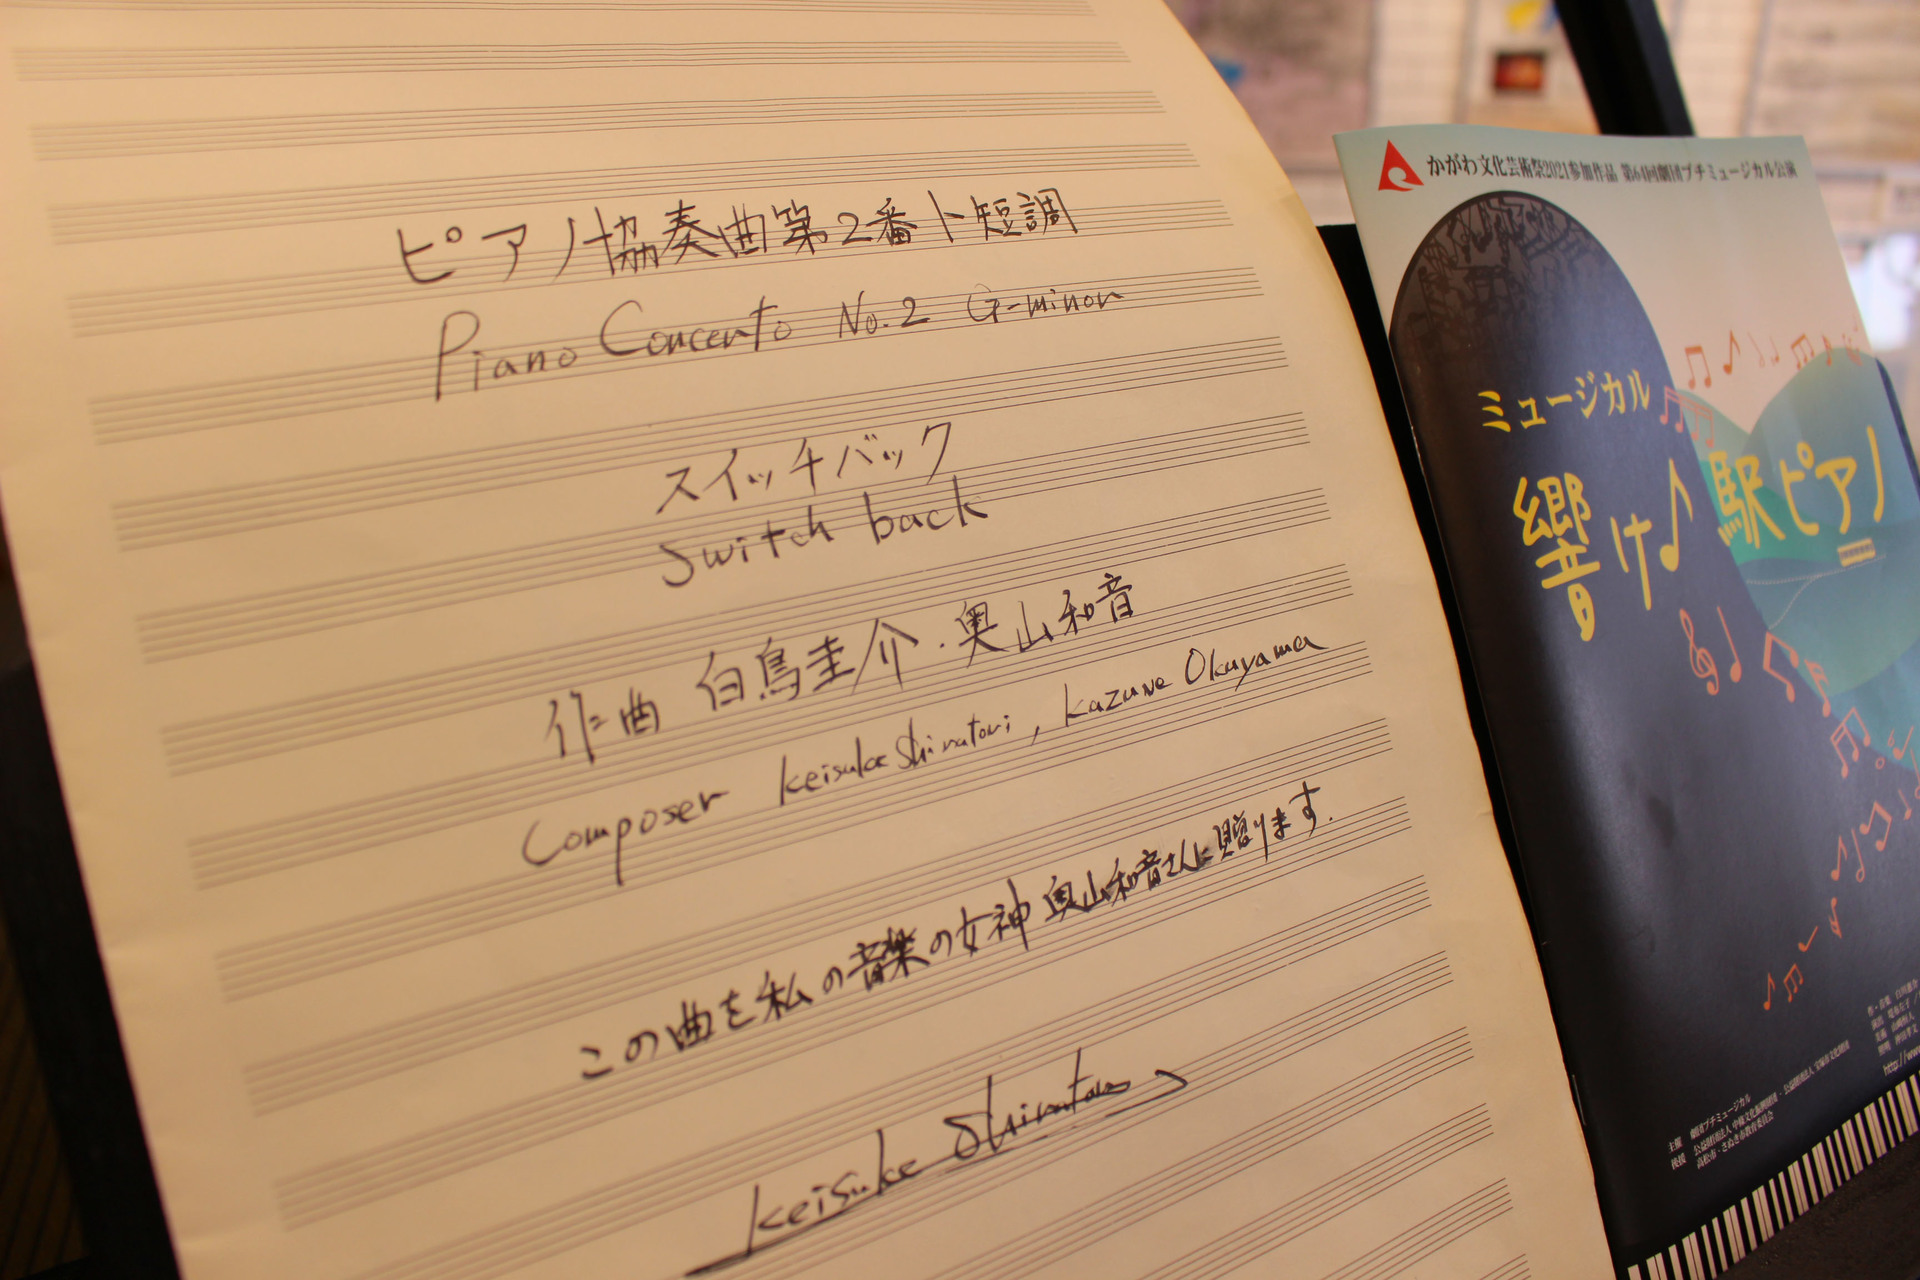 ピアノ協奏曲第2番ト短調
Piano Concerto No.2 G-minor
スイッチバック
switch back
作曲 白鳥圭介・奥山和音
Composer Keisuke Shiratori, Kazune Okuyama
この曲を私の音楽の女神 奥山和音さんに贈ります.
Keisuke Shiratori
かがわ文化芸術祭2021参加作品 第64回劇団プチミュージカル公演
ミュージカル
響け♪駅ピアノ
主催 劇団プチミュージカル
後援
高松市・さぬき市教育委員会